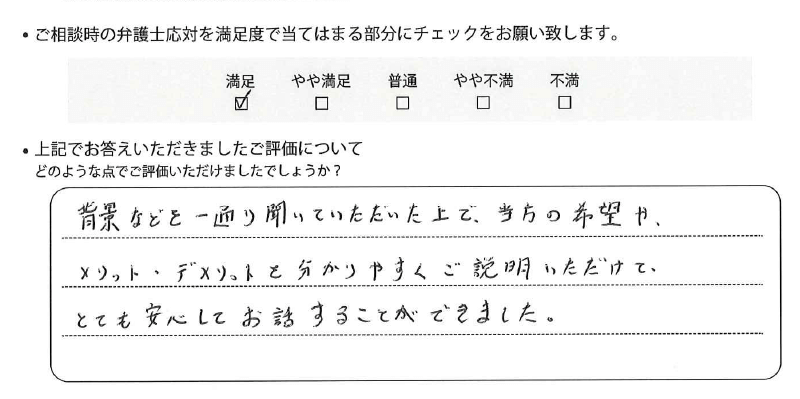 • ご相談時の弁護士応対を満足度で当てはまる部分にチェックをお願い致します。
満足 やや満足 普通 やや不満 不満
☑ □ □ □ □
• 上記でお答えいただきましたご評価について
どのような点でご評価いただけましたでしょうか？
背景などを一通り聞いていただいた上で、当方の希望や、
メリット・デメリットを分かりやすくご説明いただけて、
とても安心してお話することができました。